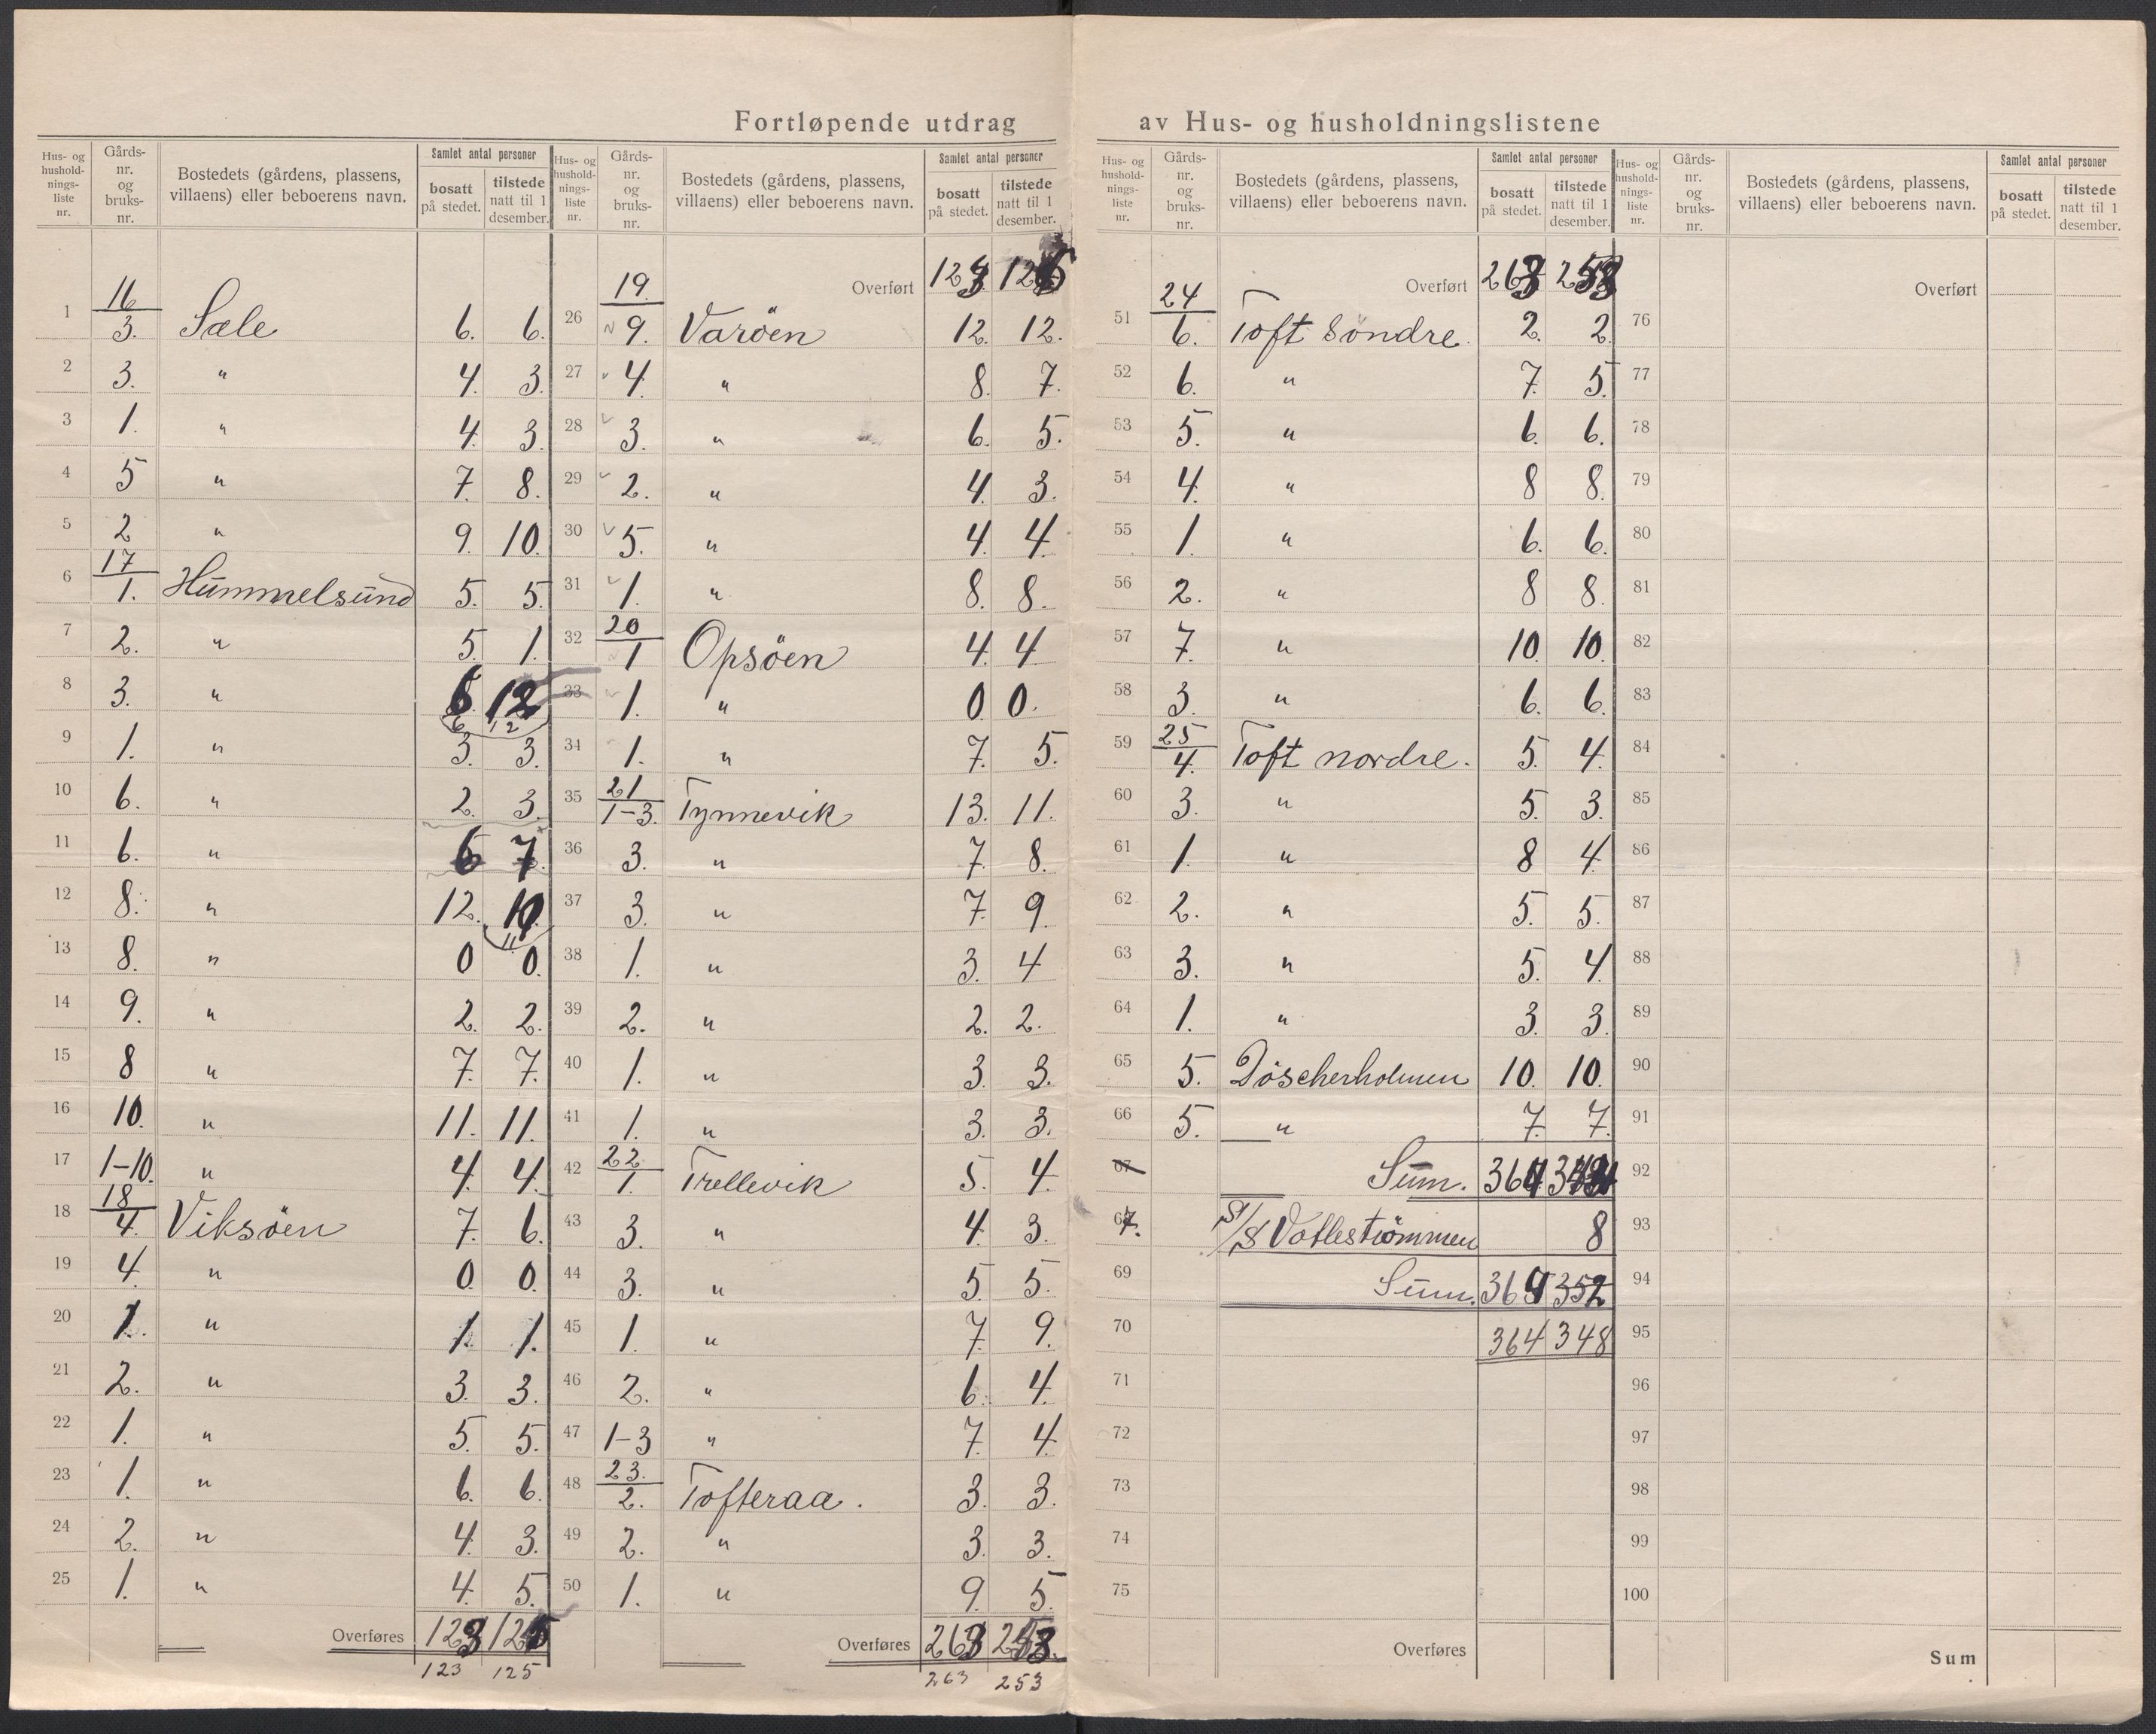 Fortløpende utdrag av Hus- og husholdningslistene
Hus- og hushold-nings-liste nr. | Gårds-nr. og bruks-nr. | Bostedets (gårdens, plassens, villaens) eller beboerens navn. | Samlet antal personer | bosatt på stedet. | tilstede natt til 1 desember.
1 16/3. Sæle 6. 6.
2 3. " 4. 3.
3 1. " 4. 3.
4 5 " 7. 8.
5 2 " 9. 10.
6 17/1. Hummelsund 5. 5.
7 2. " 5. 1.
8 3. " 6 12
6 12
9 1. " 3. 3.
10 6. " 2. 3.
11 6. " 6 7.
12 8. " 12. 10.
11
13 8. " 0 0.
14 9. " 2. 2.
15 8 " 7. 7.
16 10. " 11. 11.
17 1-10. " 4. 4.
18 18/4. Viksöen 7. 6.
19 4. " 0. 0.
20 1. " 1. 1.
21 2. " 3. 3.
22 1. " 5. 5.
23 1. " 6. 6.
24 2. " 4. 3.
25 1. " 4. 5.
Overføres 123 125
123 125
Hus- og hushold-nings-liste nr. | Gårds-nr. og bruks-nr. | Bostedets (gårdens, plassens, villaens) eller beboerens navn. | Samlet antal personer | bosatt på stedet. | tilstede natt til 1 desember.
Overført 123 125
26 19./9. Varöen 12. 12.
27 4. " 8. 7.
28 3. " 6. 5.
29 2. " 4. 3.
30 5. " 4. 4.
31 1. " 8. 8.
32 20/1 Opsöen 4. 4
33 1. " 0. 0.
34 1. " 7. 5.
35 21/1-3. Tynnevik 13. 11.
36 3. " 7. 8.
37 3. " 7. 9.
38 1. " 3. 4
39 2. " 2. 2.
40 1. " 3. 3.
41 1. " 3. 3.
42 22/1. Trellevik 5. 4.
43 3. " 4. 3.
44 3. " 5. 5.
45 1. " 7. 9.
46 2. " 6. 4.
47 1-3 " 7. 4.
48 23./2. Tofteraa. 3. 3.
49 2. " 3. 3.
50 1. " 9. 5.
Overføres 263 253.
263 253
Hus- og hushold-nings-liste nr. | Gårds-nr. og bruks-nr. | Bostedets (gårdens, plassens, villaens) eller beboerens navn. | Samlet antal personer | bosatt på stedet. | tilstede natt til 1 desember.
Overført 263 253
51 24/6. Toft Söndre. 2. 2.
52 6. " 7. 5.
53 5. " 6. 6.
54 4. " 8 8.
55 1. " 6. 6.
56 2. " 8 8.
57 7. " 10. 10.
58 3. " 6. 6.
59 25/4. Toft nordre. 5. 4.
60 3. " 5. 3.
61 1. " 8 4.
62 2. " 5. 5.
63 3. " 5. 4.
64 1. " 3. 3.
65 5. Döscherholmen 10. 10.
66 5. " 7. 7.
67 Sum. 364
67. S/S Vatlestrømmen 8
69 Sum. 352
70 364 348
71
72
73
74
75
Overføres
Hus- og hushold-nings-liste nr. | Gårds-nr. og bruks-nr. | Bostedets (gårdens, plassens, villaens) eller beboerens navn. | Samlet antal personer | bosatt på stedet. | tilstede natt til 1 desember.
Overført
76
77
78
79
80
81
82
83
84
85
86
87
88
89
90
91
92
93
94
95
96
97
98
99
100
Sum